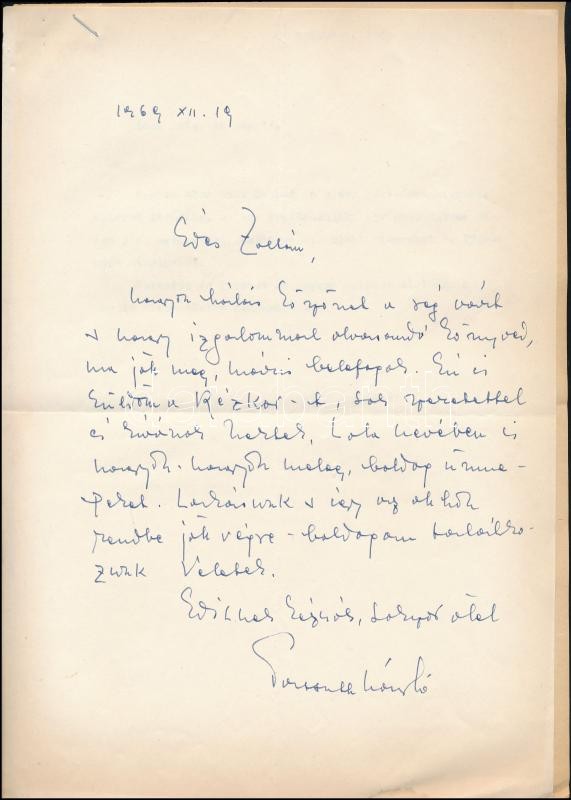 1969 XII. 19
Édes Zoltán,
nagyon hálás köszönet a rég várt
s nagy izgalommal olvasandó könyved,
ma jött meg, máris belefogok. Én is
küldöm a Rézkor-t, sok szeretettel
és kívánok Nektek, Lola nevében is
nagyon-nagyon meleg, boldog ünne-
peket. Lakásunk s így az
rendbe jött végre - boldogan találko-
zunk Veletek.
Editnek kézcsók, ölel
László